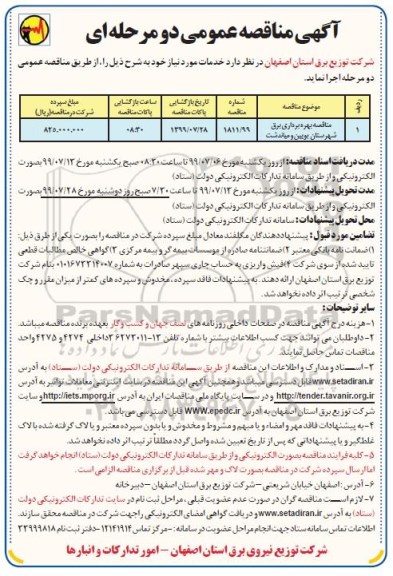 آگهی مناقصه عمومی دو مرحله ای
شرکت توزیع برق استان اصفهان در نظر دارد خدمات مورد نیاز خود به شرح ذیل را، از طریق مناقصه عمومی
دو مرحله اجرا نماید.
ردیف موضوع مناقصه شماره مناقصه تاریخ بازگشایی پاکات مناقصه ساعت بازگشایی پاکات مناقصه مبلغ سپرده شرکت در مناقصه (ریال)
۱ مناقصه بهره برداری برق شهرستان بویین و میاندشت ۱۸۱۱/۹۹ ۱۳۹۹/۰۷/۲۸ ۰۸:۳۰ ۸۲۵,۰۰۰,۰۰۰
مدت دریافت اسناد مناقصه: از روز یکشنبه مورخ ۹۹/۰۷/۰۶ تا ساعت ۰۸:۳۰ صبح یکشنبه مورخ ۹۹/۰۷/۱۳ بصورت
الکترونیکی و از طریق سامانه تدارکات الکترونیکی دولت (ستاد)
مدت تحویل پیشنهادات: از روز یکشنبه مورخ ۹۹/۰۷/۱۳ تا ساعت ۷/۳۰ صبح روز دوشنبه مورخ ۹۹/۰۷/۲۸ بصورت
الکترونیکی و از طریق سامانه تدارکات الکترونیکی دولت (ستاد)
محل تحویل پیشنهادات: سامانه تدارکات الکترونیکی دولت (ستاد)
تضامین مورد قبول: پیشنهاددهندگان مکلفند معادل مبلغ سپرده شرکت در مناقصه را بصورت یکی از طرق ذیل:
۱) ضمانت نامه بانکی معتبر ۲) ضمانتنامه صادره از موسسات بیمه گر و بیمه مرکزی ۳) گواهی خالص مطالبات قطعی
تایید شده از سوی شرکت ۴) فیش واریزی به حساب جاری سپهر صادرات به شماره بنام شرکت
توزیع برق استان اصفهان ارائه دهند. به پیشنهادات فاقد سپرده، مخدوش و سپرده های کمتر از میزان مقرر و چک
شخصی ترتیب اثر داده نخواهد شد.
سایر توضیحات:
۱- هزینه درج آگهی مناقصه در صفحات داخلی روزنامه های نصف جهان و کسب و کار بعهده برنده مناقصه میباشد.
۲- داوطلبان می توانند جهت کسب اطلاعات بیشتر با شماره تلفن ۱۲-۳۶۲۷۳۰۱۱ داخلی ۴۲۷۴ و ۴۲۷۵ واحد
مناقصات تماس حاصل نمایند.
۳- اسناد و مدارک و اطلاعات این مناقصه از طریق سامانه تدارکات الکترونیکی دولت (ستاد) به آدرس
www.setadiran.ir قابل دسترسی میباشد و همچنین آگهی این مناقصه در سایت اینترنتی معاملات توانیر به آدرس
http://tender.tavanir.org.ir و در سایت پایگاه ملی مناقصات ایران به آدرس http://iets.mporg.ir و سایت
شرکت توزیع برق استان اصفهان به آدرس www.epedc.ir قابل دسترسی می باشد.
۴- به پیشنهادات فاقد مهر و امضاء و یا مبهم و مشروط و مخدوش و یا بدون سپرده معتبر و یا لاک گرفته شده با لاک
غلط گیر و یا پیشنهاداتی که پس از تاریخ تعیین شده واصل گردد مطلقا ترتیب اثر داده نخواهد شد.
۵- کلیه فرایند مناقصه بصورت الکترونیکی و از طریق سامانه تدارکات الکترونیکی دولت (ستاد) انجام خواهد گرفت
اما ارسال سپرده شرکت در مناقصه بصورت لاک و مهر شده قبل از برگزاری مناقصه الزامی است.
۶- آدرس: اصفهان خیابان شریعتی - شرکت توزیع برق استان اصفهان - دبیرخانه
۷- لازم است مناقصه گران در صورت عدم عضویت قبلی، مراحل ثبت نام در سایت تدارکات الکترونیکی دولت
(ستاد) به آدرس www.setadiran.ir و دریافت گواهی امضای الکترونیکی را جهت شرکت در مناقصه محقق سازند.
اطلاعات تماس سامانه ستاد جهت انجام مراحل عضویت در سامانه: - مرکز تماس ۱۲۱۴۱۹۱۴ - دفتر ثبت نام ۳۲۲۹۹۸۱۸
شرکت توزیع نیروی برق استان اصفهان - امور تدارکات و انبارها